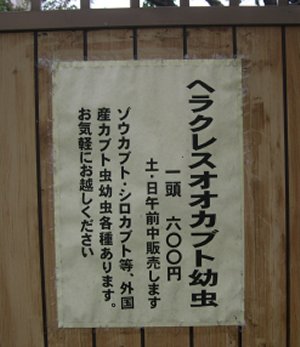 ヘラクレスオオカブト幼虫
一頭 六〇〇円
土・日午前中販売します
ゾウカブト・シロカブト等、外国
産カブト虫幼虫各種あります。
お気軽にお越しください